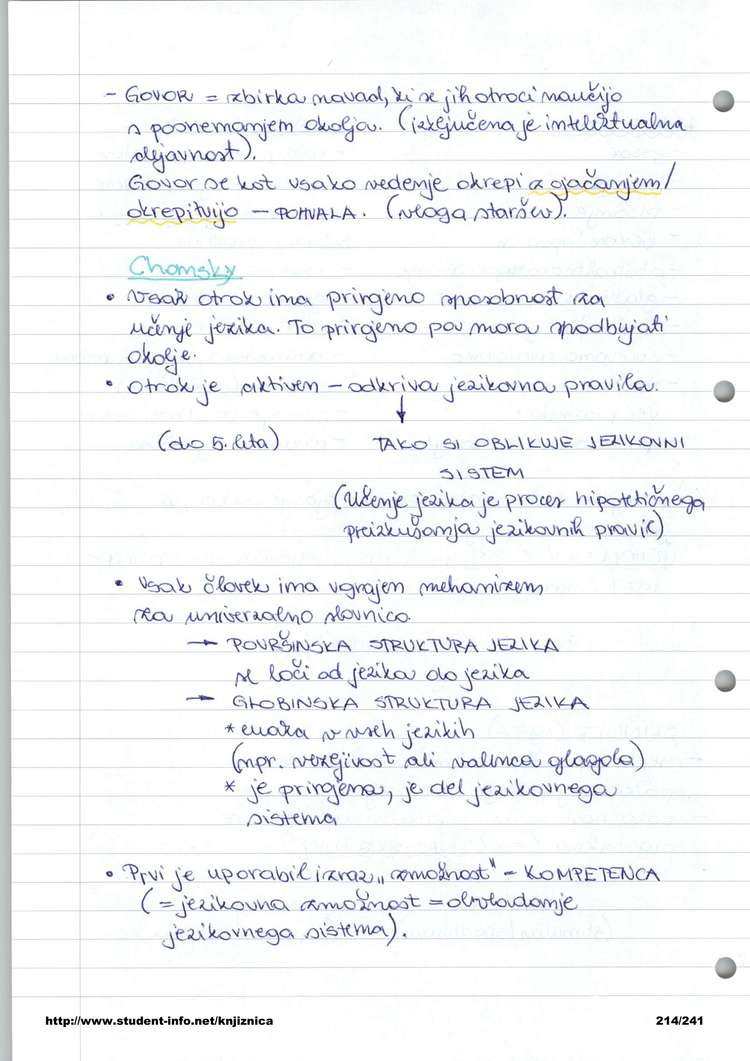 - GOVOR = zbirka navad, ki se jih otroci naučijo
s posnemanjem okolja. (izključena je intelektualna
dejavnost).
Govor se kot vsako vedenje okrepi z ojačanjem/
okrepitvijo - POHVALA. (vloga staršev).
Chomsky
• Vsak otrok ima prirojeno sposobnost za
učenje jezika. To prirojeno pa mora spodbujati
okolje.
• Otrok je aktiven - odkriva jezikovna pravila.
↓
(do 5. leta) TAKO SI OBLIKUJE JEZIKOVNI
SISTEM
(Učenje jezika je proces hipotetičnega
preizkušanja jezikovnih pravil)
• Vsak človek ima vgrajen mehanizem
za univerzalno slovnico.
→ POVRŠINSKA STRUKTURA JEZIKA
se loči od jezika do jezika
→ GLOBINSKA STRUKTURA JEZIKA
* enaka v vseh jezikih
(npr. vezljivost ali valenca glagola)
* je prirojena, je del jezikovnega
sistema
• Prvi je uporabil izraz „zmožnost" - KOMPETENCA
(= jezikovna zmožnost = obvladanje
jezikovnega sistema).
http://www.student-info.net/knjiznica 214/241